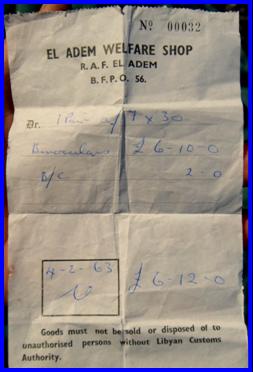 Nº 00032
EL ADEM WELFARE SHOP
R.A.F. EL ADEM
B.F.P.O. 56.
Dr. 1 Pair of 7 x 30
Binoculars £ 6-10-0
B/C 2-0
4-2-63
£ 6-12-0
Goods must not be sold or disposed of to
unauthorised persons without Libyan Customs
Authority.